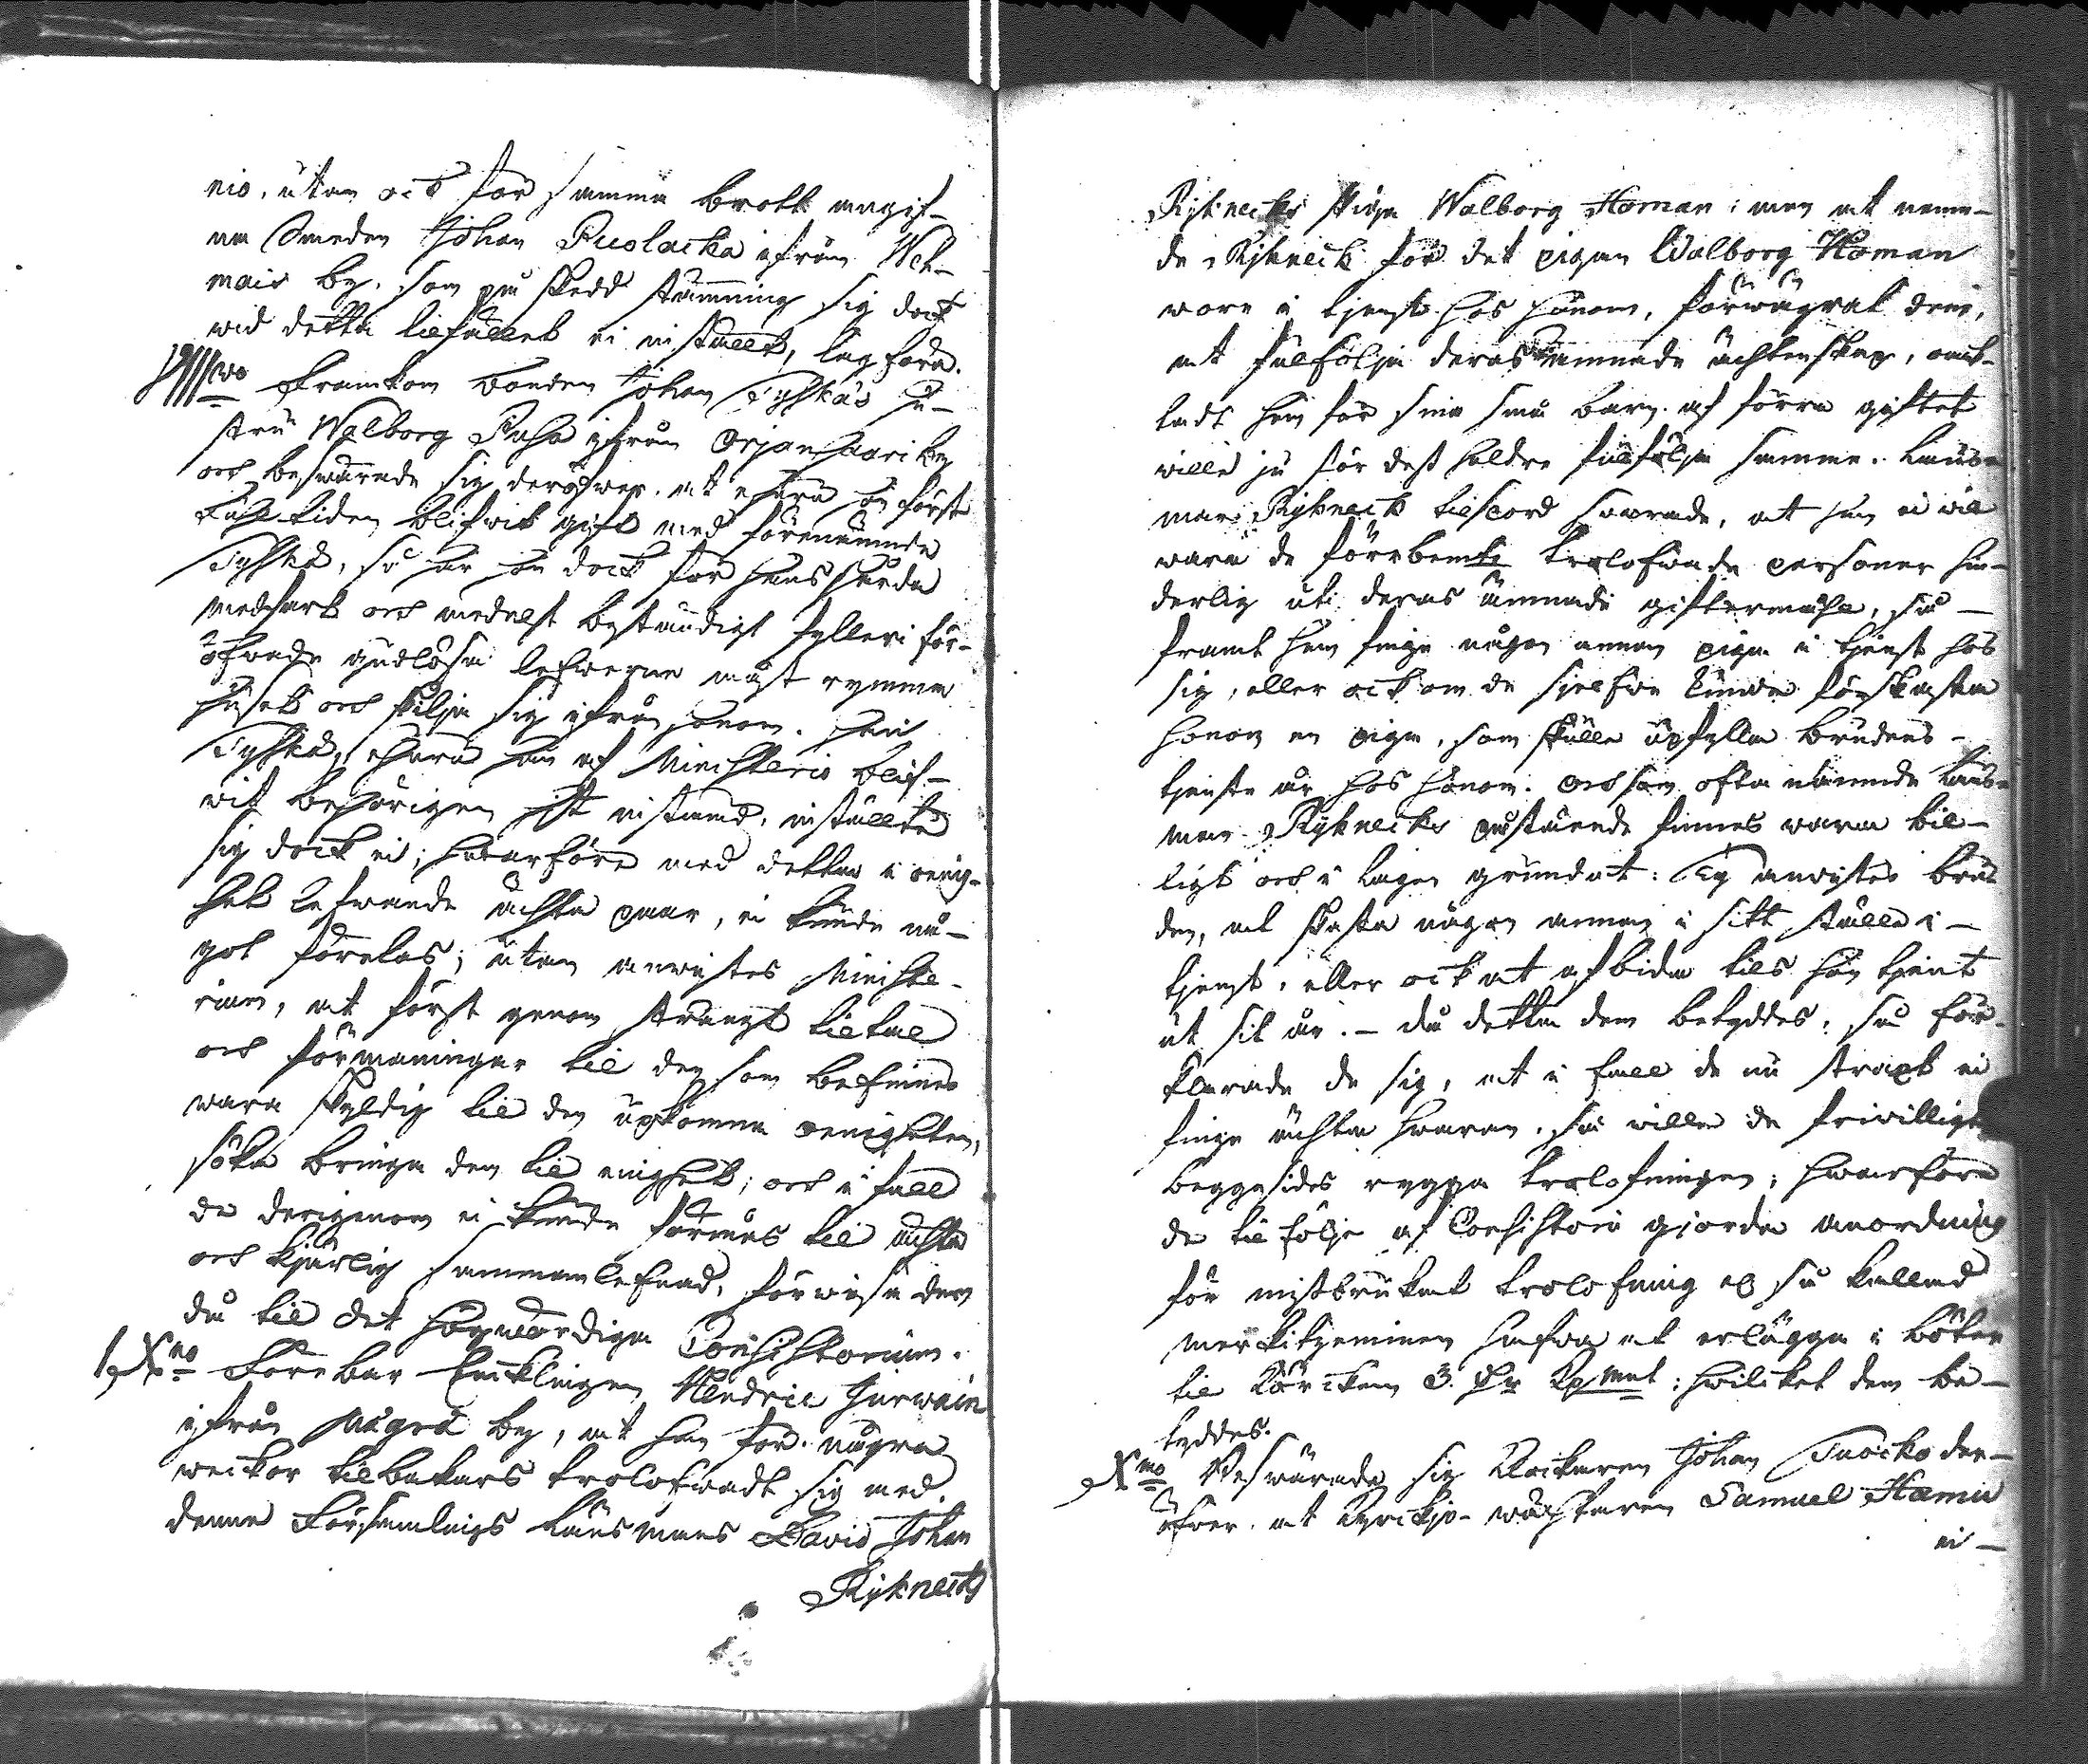 nio, utan ock för samma brott angif-
na Smeden Johan Puolacka ifrån Weh-
mais by, som på skedd stämning sig dock
wid detta tilfället ei instält, lagföra.
VIIIvo Framkom bonden Johan Tyskäs hu-
stru Walborg Paha ifrån Orjansaari by
och beswärade sig deröfwer, at ehuru hon först
blifwit gift med förenämnde
Tyskä, så har hon dock för hans hårda
medfart och medelst beständigt fylleri för-
öfwade gudlösa lefwerne måst rymma
huset och skilja sig ifrån honom. Men
Tyskä, ehuru han af Ministerio blif-
wit behörigen hit instämd, instälte
sig dock ei; hwarföre med detta i oenig-
het lefwande ächta paar, ei kunde nå-
got företas; utan anwistes Ministe-
rium, at först genom strängt tiltal
och förmaningar til den som befinnes
wara skyldig til den upkomna oenigheten,
söka bringa dem til enighet; och i fall
de derigenom ei kunde förmås til ächta
och kjärlig sammanlefnad, förwisa dem
då til det högwördiga Consistorium.
IXno Förebar Enklingen Hendric Hurwain
ifrån Mägrä by, at han för några
weckor tilbakars trolofwadt sig med
denne Församlings Länsmans David Johan
Ryknecks
Ryknecks Piga Walborg Homan; men at nämn-
de Rykneck för det pigan Walborg Homan
wore i tjenst hos honom, förwägrat dem,
at fulfölja deras ämnade ächtenskap, önsk-
ladt han för sina små barn af förra giftet
wille ju för dess heldre fulfölja samma. Läns-
man Rykneck tilspord swarade, at han ei wil
wara de förrbemte trolofwade personer hin-
derlig uti deras ämnade giftermåhl, så-
framt han finge någon annan piga i tjenst hos
sig, eller ock om de sjelfwe kunde förskaffa
honom en piga, som skulle upfylla brudens
tjenste år hos honom. Och som ofta nämnde Läns-
man Rykneks påstående finnes wara bil-
ligt och i Lagen grundat: Ty anwistes bru-
den, at skaffa någon annan i sitt ställe i
tjenst, eller ock at afbida tils hon tjent
ut sit år. – Då detta dem betyddes, så för-
klarade de sig, at i fall de nu straxt ei
finge ächta hwaran, så wille de friwilligt
beggesides rygga trolofningen; hwarföre
de til följe af Consistorii gjorde anordning
för missbrukat trolofning så kallad
hafwa at erlägga i böter
til Körckan 3. Dr Kpmnt; hwilcket dem be-
tyddes.
Xmo Beswärade sig Klockaren Johan Tuocko der-
öfwer, at Kyrckjo-wächtaren Samuel Hamu
ei –